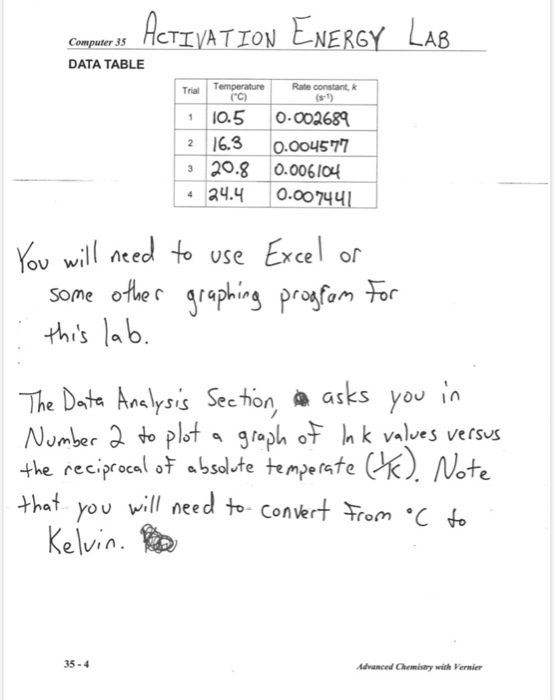 Computer 35 ACTIVATION ENERGY LAB
DATA TABLE
Trial Temperature (°C) Rate constant, k (s⁻¹)
1 10.5 0.002689
2 16.3 0.004577
3 20.8 0.006104
4 24.4 0.007441
You will need to use Excel or
some other graphing program for
this lab.
The Data Analysis Section, asks you in
Number 2 to plot a graph of ln k values versus
the reciprocal of absolute temperate (1/K). Note
that you will need to convert from °C to
Kelvin.
35 - 4 Advanced Chemistry with Vernier